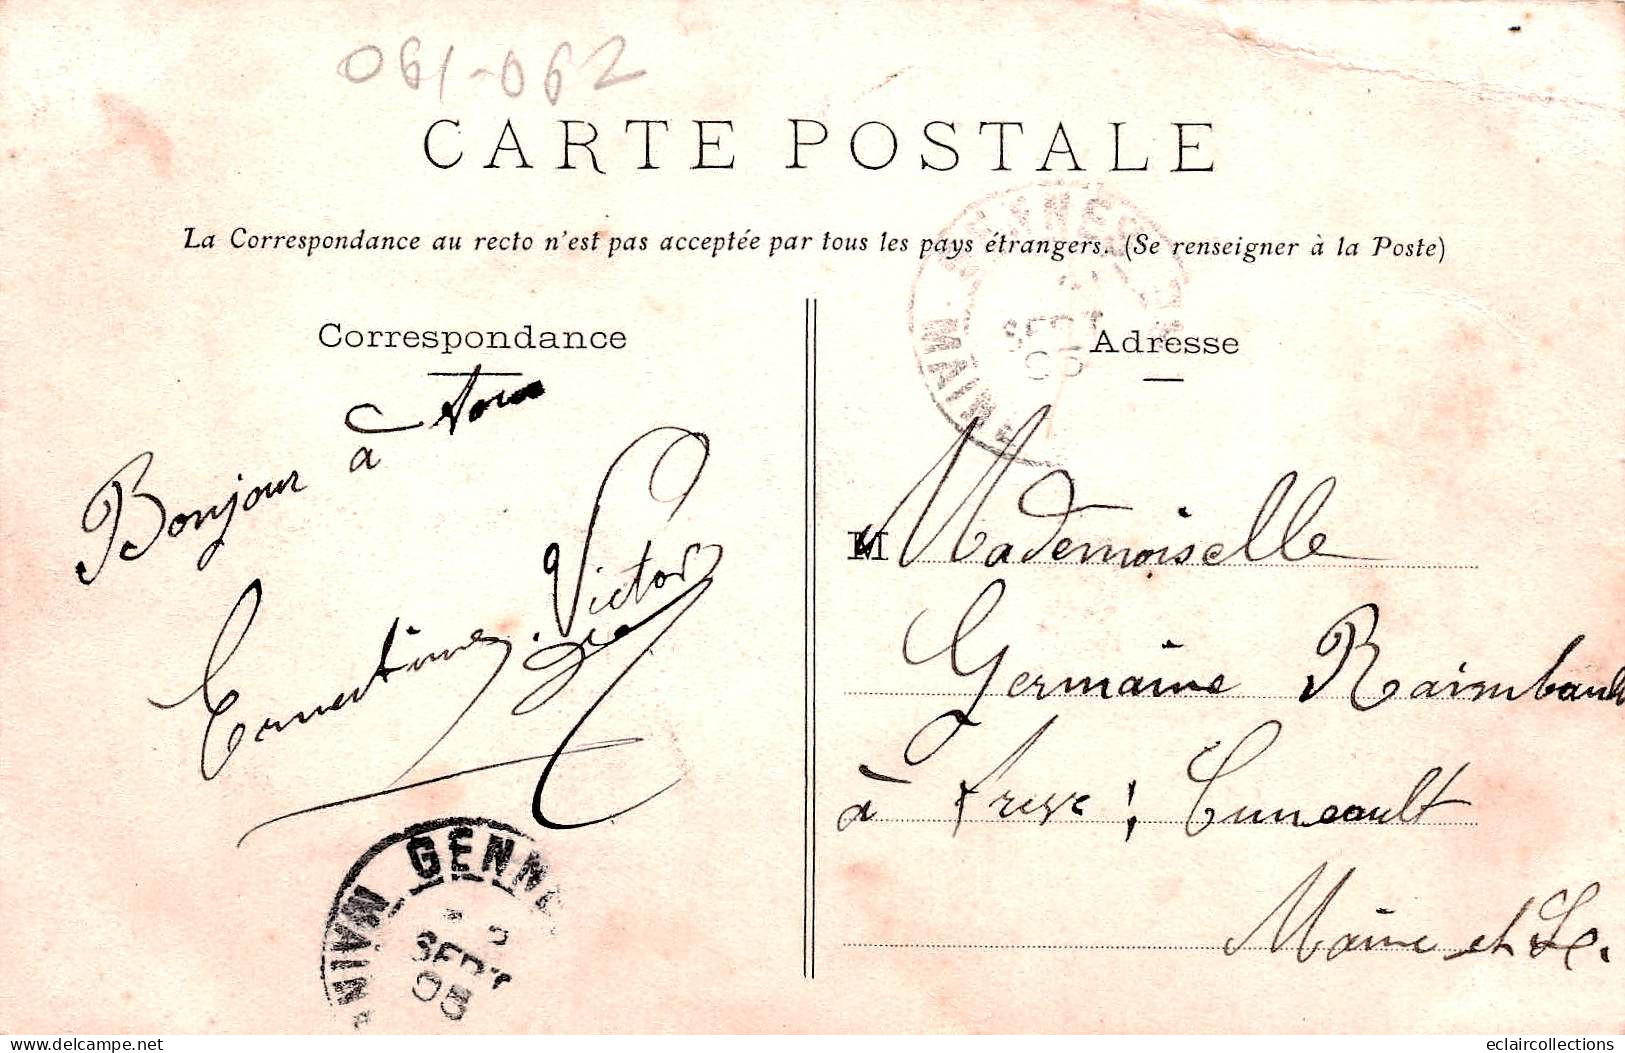 061-062
CARTE POSTALE
La Correspondance au recto n'est pas acceptée par tous les pays étrangers. (Se renseigner à la Poste)
Correspondance
Bonjour à tous
Ernestine Victor
GENNE
MAINE
SEPT
05
MAINE
SEPT
Adresse
M
Mademoiselle
Germaine Raimbault
à Trèves Cunault
Maine et L.
delcampe.net
eclaircollections